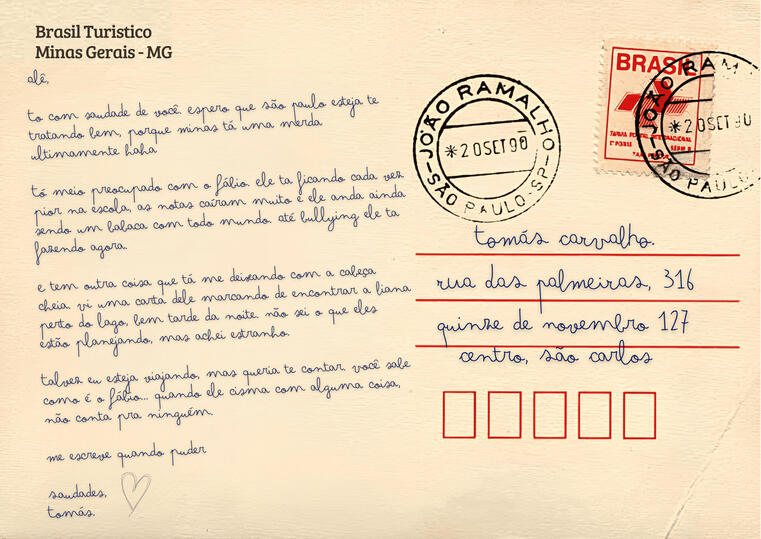 Brasil Turistico
Minas Gerais - MG
alê,
to com saudade de você. espero que são paulo esteja te
tratando bem, porque minas tá uma merda
ultimamente haha
tô meio preocupado com o fábio. ele ta ficando cada vez
pior na escola, as notas caíram muito e ele anda ainda
sendo um babaca com todo mundo. até bullying ele ta
fazendo agora.
e tem outra coisa que tá me deixando com a cabeça
cheia. vi uma carta dele marcando de encontrar a liana
perto do lago, bem tarde da noite. não sei o que eles
estão planejando, mas achei estranho.
talvez eu esteja viajando, mas queria te contar. você sabe
como é o fábio... quando ele cisma com alguma coisa,
não conta pra ninguém.
me escreve quando puder
saudades,
tomás.
JOÃO RAMALHO
*20SET90
SÃO PAULO-SP
BRASIL
TARIFA POSTAL INTERNACIONAL
JOÃO RAM
*20SET90
SÃO PAULO
tomás carvalho.
rua das palmeiras, 316
quinze de novembro 127
centro, são carlos